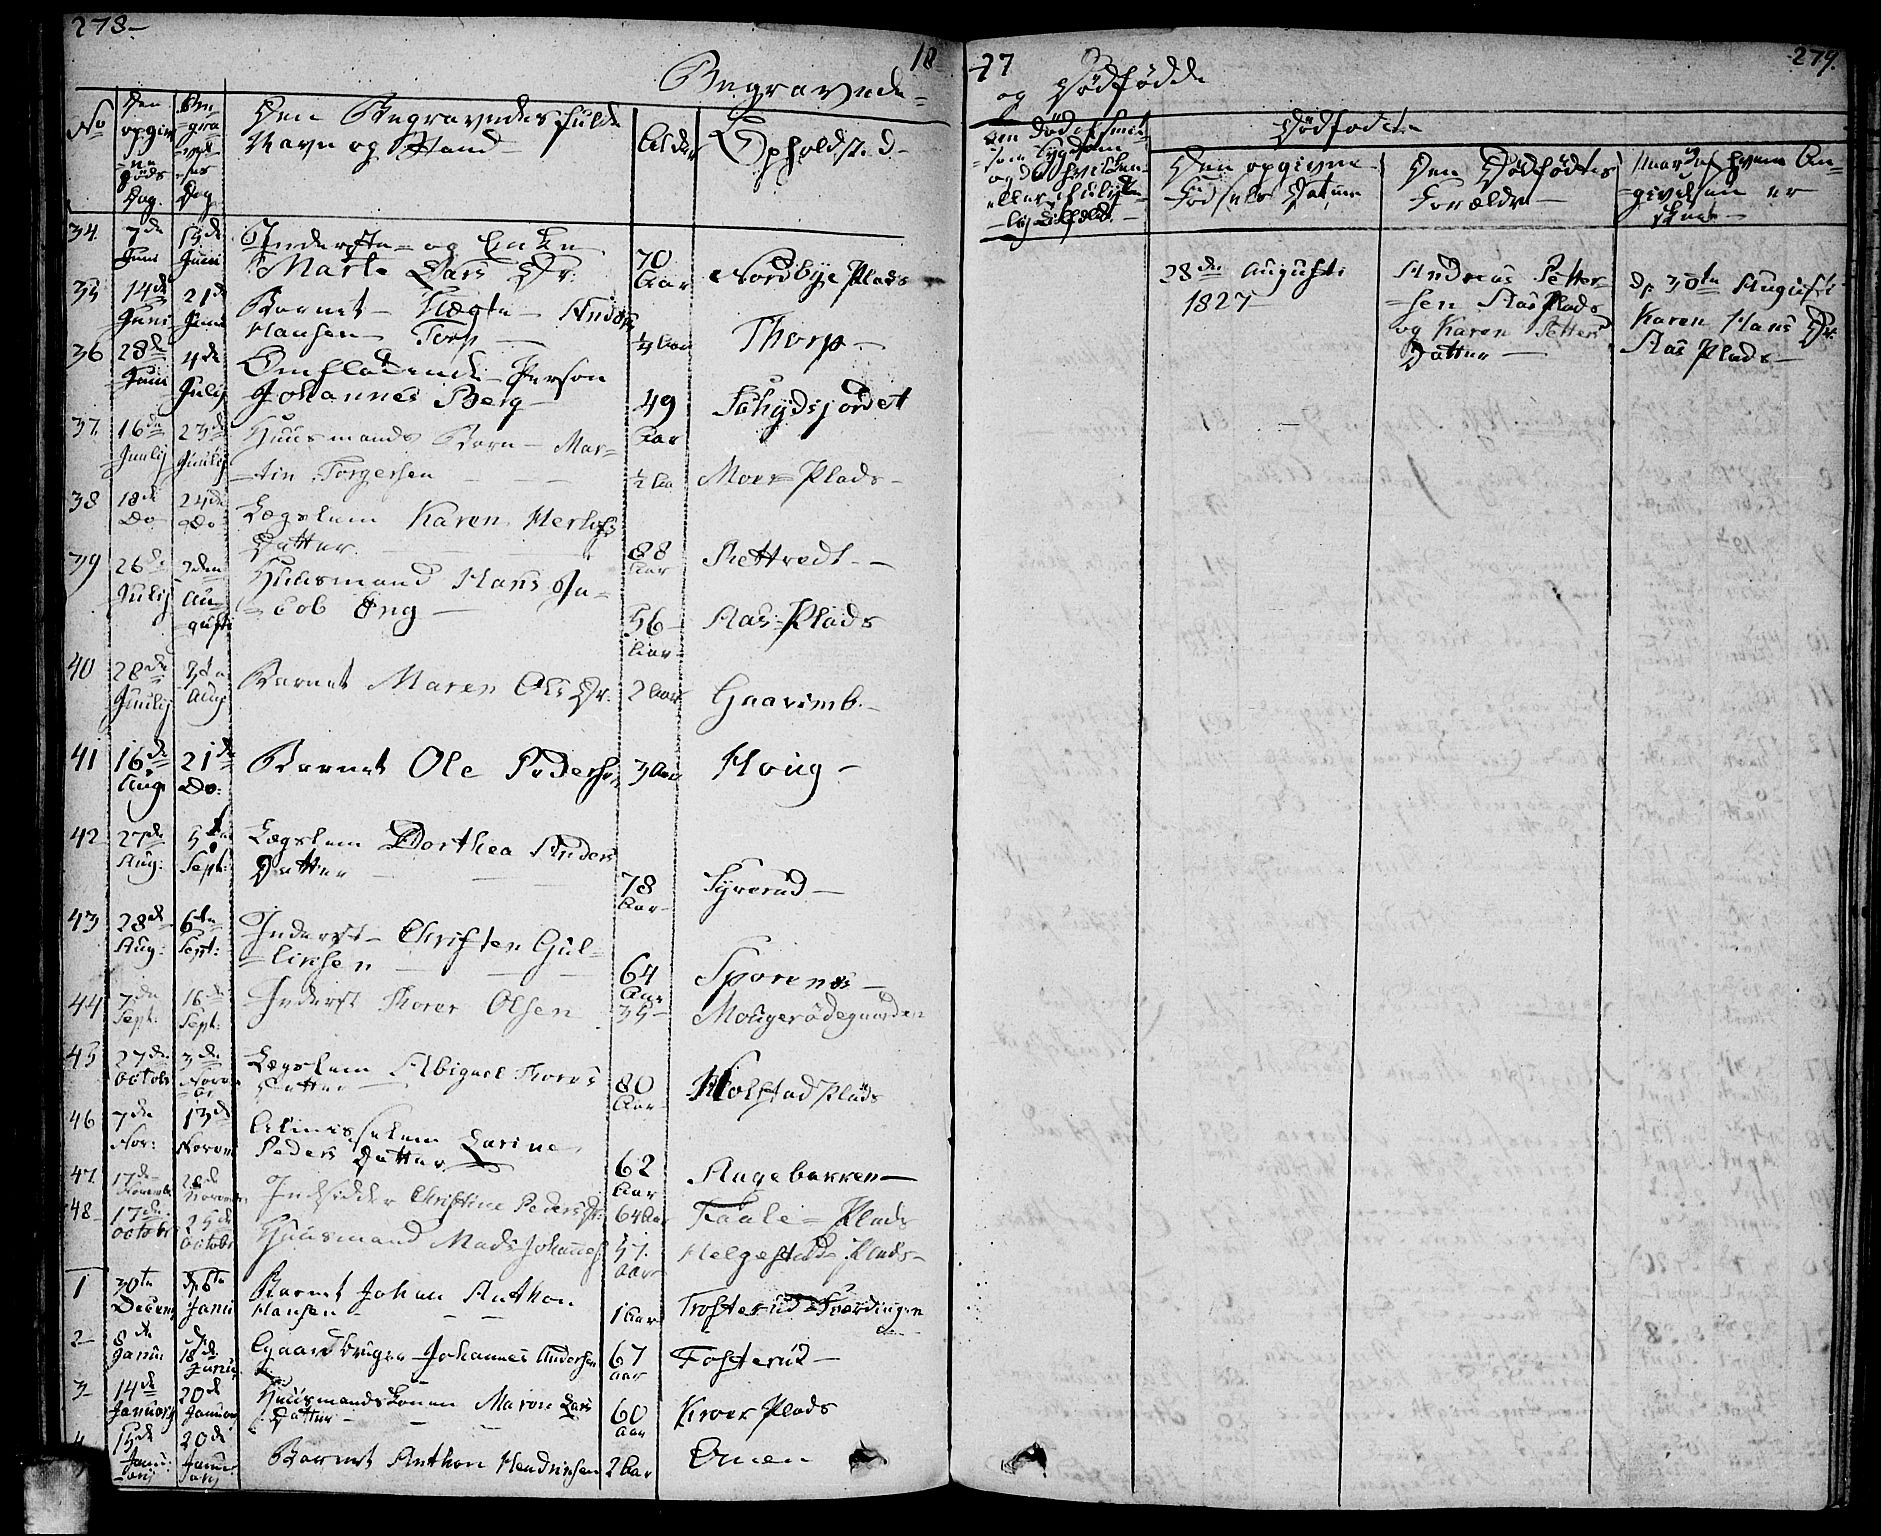 273-
18
Begravede
No
Den opgivne Døds Dag.
Begravelses Dag
Den Begravedes fulde Navn og Stand
Alder
Opholdsted
34. 7de Juni 15de Juni Inderste- og Enke
Marte Lars Dr. 70 Aar Nordbye Plads
35 14de Juni 21de Juni Barnet Uægte Anders
Hansen Torp ¼ Aar Thorp
36 28de Juni 4de Julij Omfladende Person
Johannes Berg 49 Aar Schydsjordet
37. 16de Juulij 23de Juulij Huusmands Barn Mar-
tin Torgersen ½ Aar Moer Plads
38 18de Do 24de Do Lægslem Karen Herlofs
Datter 88 Aar Rettvedt
39 26de Julij 3den Augusti Huusmand Hans Ja-
cob Eng 56 Aar Aas Plads
40 28de Juulij Aug Barnet Maren Ols Dr. 2 Aar Gaarimb
41 16de Aug 21de Do: Barnet Ole Pedersen 3 Aar Houg
42 27de Aug: 5te Sept: Lægslem Dorthea Anders
Datter 78 Aar Syverud
43 28de Aug: 6te Sept: Inderst Christen Gul-
liksen 64 Aar Sporenes
44 7de Sept: 16de Sept: Inderst Thorer Olsen 35 Mougerødegaarden
45 27de Octobr 3de Novembr Lægslem Abiguel Thores
Datter 80 Aar Holstad Plads
46 7de Nov: 13de Novem Almisselem Larine
Peders Datter 62 Aar Aagebakken
47. 17de Novembr 28de Novembr Indsidder Christine Peders Dr. 64 Aar Faale Plads
48 17de Octobr 25de Octobr Huusmand Mads Johannes 57 Aar Helgestad Plads
1 30te Decem 6te Janu Barnet Johan Anthon
Hansen 1 Aar Trosterud Fværdingen
2 8de Janu 18de Januar Gaardbruger Johannes Andersen 67 Aar Fosterud
3 14de Januarij 20de Januar Huusmandskonen Maren Lars
Datter 60 Aar Kroer Plads
4 15de Januarij 20de Januarij Barnet Anthon Hendrichsen 2 Aar Omen
27
279.
og Dødfødde
Den Døde af smitsom Sygdom
Dødfødte
Den opgivne Fødsels Datum
Den Dødfødtes Forældre
Naar og af hvem Angivelsen er skeet
28de Augusti
1827
Andreas Petter-
sen Aas Plads
og Karen Petters
Datter
d. 30te August
Karen Hans Dr.
Aas Plads